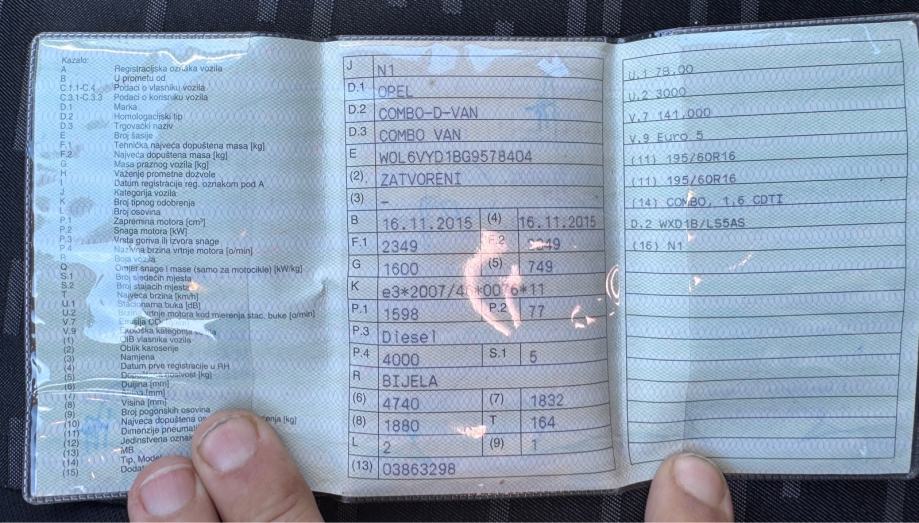 Kazalo:
A Registracijska oznaka vozila
B U prometu od
C.1.1-C.4 Podaci o vlasniku vozila
C.3.1-C.3.3 Podaci o korisniku vozila
D.1 Marka
D.2 Homologacijski tip
D.3 Trgovački naziv
E Broj šasije
F.1 Tehnička najveća dopuštena masa [kg]
F.2 Najveća dopuštena masa [kg]
G Masa praznog vozila [kg]
H Važenje prometne dozvole
I Datum registracije reg. oznakom pod A
J Kategorija vozila
K Broj tipnog odobrenja
L Broj osovina
P.1 Zapremina motora [cm³]
P.2 Snaga motora [kW]
P.3 Vrsta goriva ili izvora snage
P.4 Nazivna brzina vrtnje motora [o/min]
R Boja vozila
Q Omjer snage i mase (samo za motocikle) [kW/kg]
S.1 Broj sjedećih mjesta
S.2 Broj stajaćih mjesta
T Najveća brzina [km/h]
U.1 Stacionarna buka [dB]
U.2 vrtnje motora kod mjerenja stac. buke [o/min]
V.7
V.9 Ekološka kategorija
(1) OIB vlasnika vozila
(2) Oblik karoserije
(3) Namjena
(4) Datum prve registracije u RH
(5) nosivost [kg]
(6) Duljina [mm]
(7) [mm]
(8) Visina [mm]
(9) Broj pogonskih osovina
(10) Najveća dopuštena [kg]
(11) Dimenzije
(12) Jedinstvena
(13) MB
(14) Tip,
(15)
J N1
D.1 OPEL
D.2 COMBO-D-VAN
D.3 COMBO VAN
E W0L6VYD1BG9578404
(2) ZATVORENI
(3) –
B 16.11.2015 (4) 16.11.2015
F.1 2349 F.2
G 1600 (5) 749
K
P.1 1598 P.2 77
P.3 Diesel
P.4 4000 S.1 5
R BIJELA
(6) 4740 (7) 1832
(8) 1880 T 164
L 2 (9) 1
(13) 03863298
U.1 78.00
U.2 3000
V.7 141.000
V.9 Euro 5
(11) 195/60R16
(11) 195/60R16
(14) COMBO, 1,6 CDTI
D.2 WXD1B/LS5AS
(16) N1